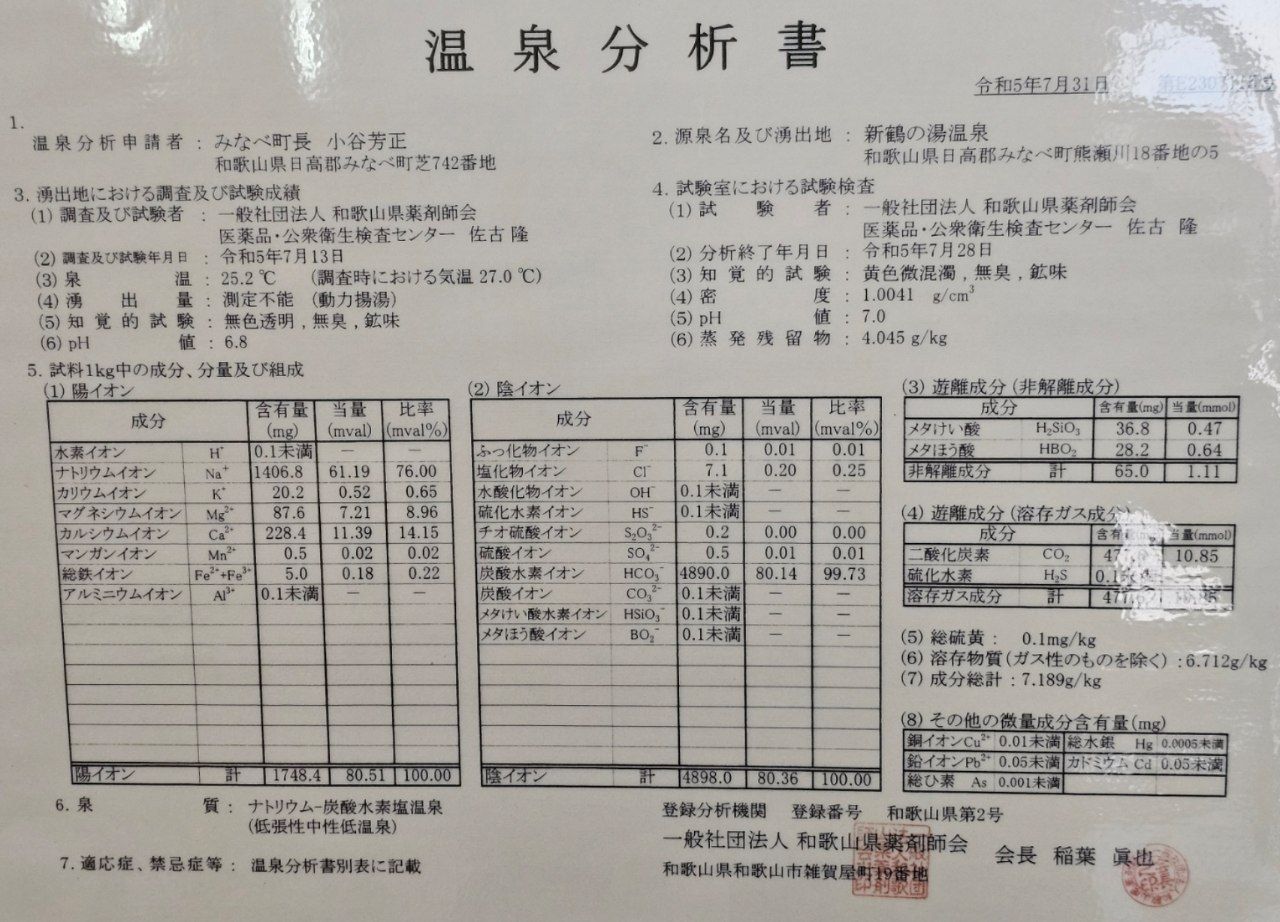 温泉分析書
令和5年7月31日
1.
温泉分析申請者 : みなべ町長 小谷芳正
和歌山県日高郡みなべ町芝742番地
2. 源泉名及び湧出地 : 新鶴の湯温泉
和歌山県日高郡みなべ町熊瀬川18番地の5
3. 湧出地における調査及び試験成績
(1) 調査及び試験者 : 一般社団法人 和歌山県薬剤師会
医薬品・公衆衛生検査センター 佐古 隆
(2) 調査及び試験年月日 : 令和5年7月13日
(3) 泉温 : 25.2 ℃ (調査時における気温 27.0 ℃)
(4) 湧出量 : 測定不能 (動力揚湯)
(5) 知覚的試験 : 無色透明 , 無臭 , 鉱味
(6) pH値 : 6.8
4. 試験室における試験検査
(1) 試験者 : 一般社団法人 和歌山県薬剤師会
医薬品・公衆衛生検査センター 佐古 隆
(2) 分析終了年月日 : 令和5年7月28日
(3) 知覚的試験 : 黄色微混濁 , 無臭 , 鉱味
(4) 密度 : 1.0041 g/cm³
(5) pH値 : 7.0
(6) 蒸発残留物 : 4.045 g/kg
5. 試料1kg中の成分、分量及び組成
(1) 陽イオン
成分 含有量(mg) 当量(mval) 比率(mval%)
水素イオン H⁺ 0.1未満 — —
ナトリウムイオン Na⁺ 1406.8 61.19 76.00
カリウムイオン K⁺ 20.2 0.52 0.65
マグネシウムイオン Mg²⁺ 87.6 7.21 8.96
カルシウムイオン Ca²⁺ 228.4 11.39 14.15
マンガンイオン Mn²⁺ 0.5 0.02 0.02
総鉄イオン Fe²⁺+Fe³⁺ 5.0 0.18 0.22
アルミニウムイオン Al³⁺ 0.1未満 — —
陽イオン 計 1748.4 80.51 100.00
(2) 陰イオン
成分 含有量(mg) 当量(mval) 比率(mval%)
ふっ化物イオン F⁻ 0.1 0.01 0.01
塩化物イオン Cl⁻ 7.1 0.20 0.25
水酸化物イオン OH⁻ 0.1未満 — —
硫化水素イオン HS⁻ 0.1未満 — —
チオ硫酸イオン S₂O₃²⁻ 0.2 0.00 0.00
硫酸イオン SO₄²⁻ 0.5 0.01 0.01
炭酸水素イオン HCO₃⁻ 4890.0 80.14 99.73
炭酸イオン CO₃²⁻ 0.1未満 — —
メタけい酸水素イオン HSiO₃⁻ 0.1未満 — —
メタほう酸イオン BO₂⁻ 0.1未満 — —
陰イオン 計 4898.0 80.36 100.00
(3) 遊離成分 (非解離成分)
成分 含有量(mg) 当量(mmol)
メタけい酸 H₂SiO₃ 36.8 0.47
メタほう酸 HBO₂ 28.2 0.64
非解離成分 計 65.0 1.11
(4) 遊離成分 (溶存ガス成分)
成分 当量(mmol)
二酸化炭素 CO₂ 10.85
硫化水素 H₂S
溶存ガス成分 計
(5) 総硫黄 : 0.1mg/kg
(6) 溶存物質 (ガス性のものを除く) : 6.712g/kg
(7) 成分総計 : 7.189g/kg
(8) その他の微量成分含有量(mg)
銅イオンCu²⁺ 0.01未満 総水銀 Hg 0.0005未満
鉛イオンPb²⁺ 0.05未満 カドミウム Cd 0.05未満
総ひ素 As 0.001未満
6. 泉質 : ナトリウム-炭酸水素塩温泉
(低張性中性低温泉)
7. 適応症、禁忌症等 : 温泉分析書別表に記載
登録分析機関 登録番号 和歌山県第2号
一般社団法人 和歌山県薬剤師会 会長 稲葉 眞也
和歌山県和歌山市雑賀屋町19番地